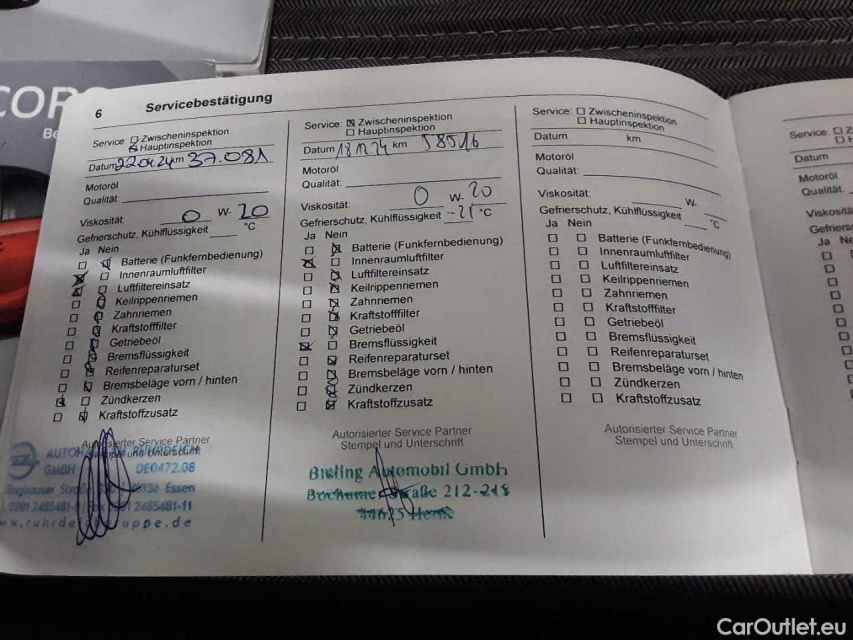 COR
6 Servicebestätigung
Service: Zwischeninspektion
Hauptinspektion
Datum 22.04.24 km 37.081
Motoröl
Qualität:
Viskosität: 0 W- 20
Gefrierschutz, Kühlflüssigkeit °C
Ja Nein
Batterie (Funkfernbedienung)
Innenraumluftfilter
Luftfiltereinsatz
Keilrippenriemen
Zahnriemen
Kraftstofffilter
Getriebeöl
Bremsflüssigkeit
Reifenreparaturset
Bremsbeläge vorn / hinten
Zündkerzen
Kraftstoffzusatz
Service Partner
GMBH DE0472.08
Essen
2485481-11
Service: Zwischeninspektion
Hauptinspektion
Datum 18.12.24 km 58516
Motoröl
Qualität:
Viskosität: 0 W- 20
Gefrierschutz, Kühlflüssigkeit -21 °C
Ja Nein
Batterie (Funkfernbedienung)
Innenraumluftfilter
Luftfiltereinsatz
Keilrippenriemen
Zahnriemen
Kraftstofffilter
Getriebeöl
Bremsflüssigkeit
Reifenreparaturset
Bremsbeläge vorn / hinten
Zündkerzen
Kraftstoffzusatz
Autorisierter Service Partner
Stempel und Unterschrift
Automobil GmbH
212-218
Service: Zwischeninspektion
Hauptinspektion
Datum km
Motoröl
Qualität:
Viskosität: W-
Gefrierschutz, Kühlflüssigkeit °C
Ja Nein
Batterie (Funkfernbedienung)
Innenraumluftfilter
Luftfiltereinsatz
Keilrippenriemen
Zahnriemen
Kraftstofffilter
Getriebeöl
Bremsflüssigkeit
Reifenreparaturset
Bremsbeläge vorn / hinten
Zündkerzen
Kraftstoffzusatz
Autorisierter Service Partner
Stempel und Unterschrift
Service:
Datum
Motoröl
Qualität:
Ja
CarOutlet.eu